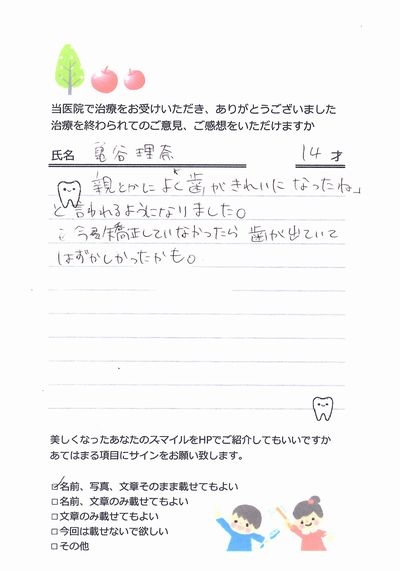 当医院で治療をお受けいただき、ありがとうございました
治療を終わられてのご意見、ご感想をいただけますか
氏名 亀谷理奈 14才
親とかによく「歯がきれいになったね」
と言われるようになりました。
今矯正していなかったら歯が出ていて
はずかしかったかも。
美しくなったあなたのスマイルをHPでご紹介してもいいですか
あてはまる項目にサインをお願い致します。
☑名前、写真、文章そのまま載せてもよい
□名前、文章のみ載せてもよい
□文章のみ載せてもよい
□今回は載せないで欲しい
□その他